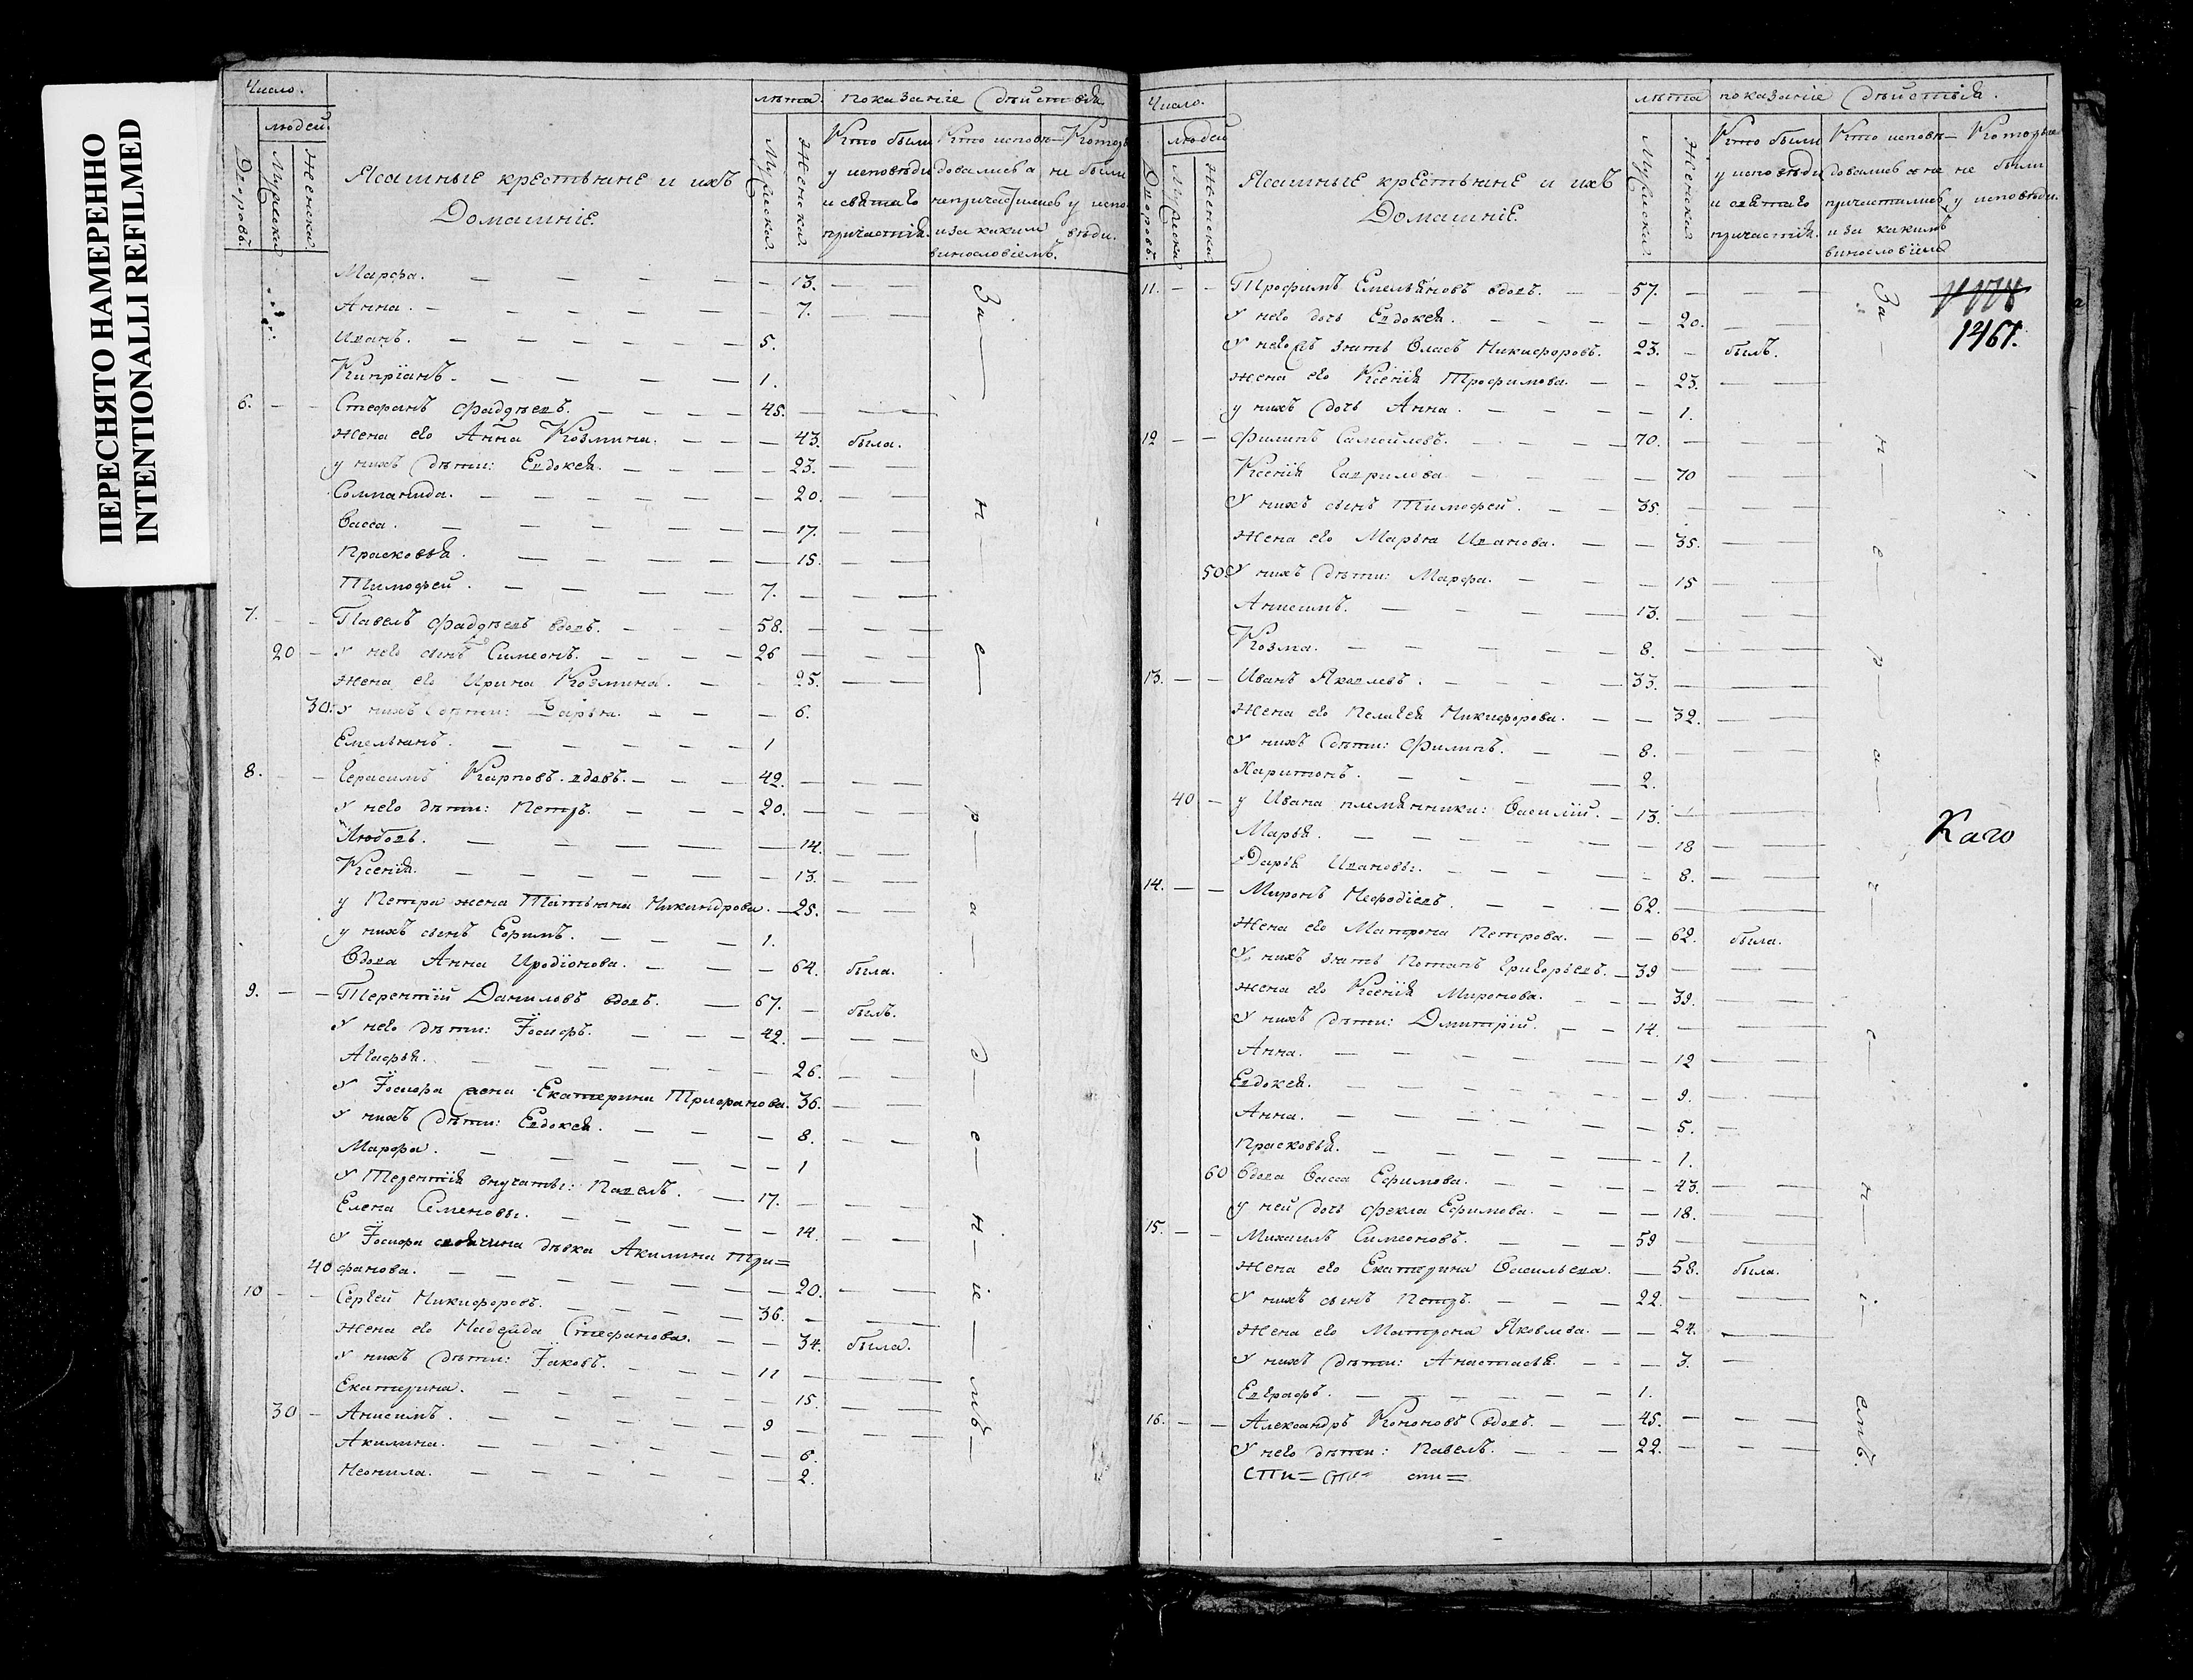 ПЕРЕСНЯТО НАМЕРЕННО
INTENTIONALLI REFILMED
Число. лѣта. показанiе дѣйствiя
людей
Дворовъ. Мужеска Женска. Ясашные крестьяне и ихъ Домашнiе. Мужеска. Женска.
Кто были у исповѣди и святаго причастiя.
Кто исповѣдовались а непричастились и за какимъ винословiемъ.
не были у исповѣди.
Марфа. — 13.
Анна. — 7.
Иванъ. — 5.
Кипрiанъ. — 1.
6. Стефанъ Фадѣевъ. — 45.
Жена его Анна Козмина. — 43. была.
у нихъ дѣти: Евдокея. — 23.
Соломанида. — 20.
Васса. — 17.
Прасковья. — 15.
Тимофей. — 7.
7. Павелъ Фадѣевъ вдовъ. — 58.
20 У него сынъ Симеонъ. — 26
Жена его Ирина Козмина. — 25.
30. У нихъ дѣти: Дарья. — 6.
Емельянъ. — 1
8. Герасимъ Карповъ вдовъ. — 42.
У него дѣти: Петръ. — 20.
Любовь. — 14.
Ксенiя. — 13.
у Петра жена Татьяна Никандрова. — 25.
у нихъ сынъ Ефимъ. — 1.
Вдова Анна Иродiонова. — 64. была.
9. Терентiй Даниловъ вдовъ. — 67. былъ.
У него дѣти: Iосифъ. — 42.
Агафья. — 26.
У Iосифа жена Екатерина Трифанова. 36.
У нихъ дѣти: Евдокея. — 8.
Марфа. — 1
У Терентiя внучаты: Павелъ. — 17.
Елена Семеновы. — 14.
У Iосифа дѣвка Акилина Три=
40 фанова. — 20.
10 Сергей Никифоровъ. — 36.
Жена его Надежда Стефанова. — 34. была.
У нихъ дѣти: Iаковъ. — 11
Екатерина. — 15.
30 Анисимъ. — 9
Акилина. — 6.
Неонила. — 2.
За — н — е — р — а — д — е — н — iе — мъ —
Число. лѣта показанiе дѣйствiя.
людей
Дворовъ. Мужеска Женска. Ясашные крестьяне и ихъ Домашнiе. Мужеска. Женска.
Кто были у исповѣди и святаго причастiя.
Кто исповѣдовались а не причастились и за какимъ винословiемъ
Которые не были у исповѣди.
11. Трофимъ Емельяновъ вдовъ. — 57.
У него дочь Евдокея. — 20.
У него зять Власъ Никифоровъ. 23. былъ.
Жена его Ксенiя Трофимова. — 23.
у нихъ дочь Анна. — 1.
12 Филипъ Самойловъ. — 70.
Ксенiя Гаврилова — 70
У нихъ сынъ Тимофей. — 35.
Жена его Марья Иванова. — 35.
50 У нихъ дѣти: Марфа. — 15
Анисимъ. — 13.
Козма. — 8.
13. Иванъ Яковлевъ. — 33.
Жена его Пелагея Никифорова. — 32.
У нихъ дѣти: Филипъ. — 8.
Харитонъ. — 2.
40 у Ивана племянники: Василiй. — 13.
Марья. — 18
Дарья Ивановы. — 8.
14. Миронъ Мефодiевъ. — 62.
Жена его Матрона Петрова. — 62. была.
У нихъ зять Потапъ Григорьевъ. — 39
Жена его Ксенiя Миронова. — 39.
У нихъ дѣти: Дмитрiй. — 14.
Анна. — 12
Евдокея. — 9.
Анна. — 5.
Прасковья. — 1.
60 Вдова Васса Ефимова. — 43.
у ней дочь Фекла Ефимова. — 18.
15. Михаилъ Симеоновъ. — 59
Жена его Екатерина Васильева. — 58. была.
У нихъ сынъ Петръ. — 22.
Жена его Матрона Яковлева. — 24.
У нихъ дѣти: Анастасья. — 3.
Евграфъ. — 1.
16. Александръ Кононовъ вдовъ. — 45.
У него дѣти: Павелъ. — 22.
сти= сти= сти=
За — н — е — р — а — д — е — н — i — емъ.
Каго